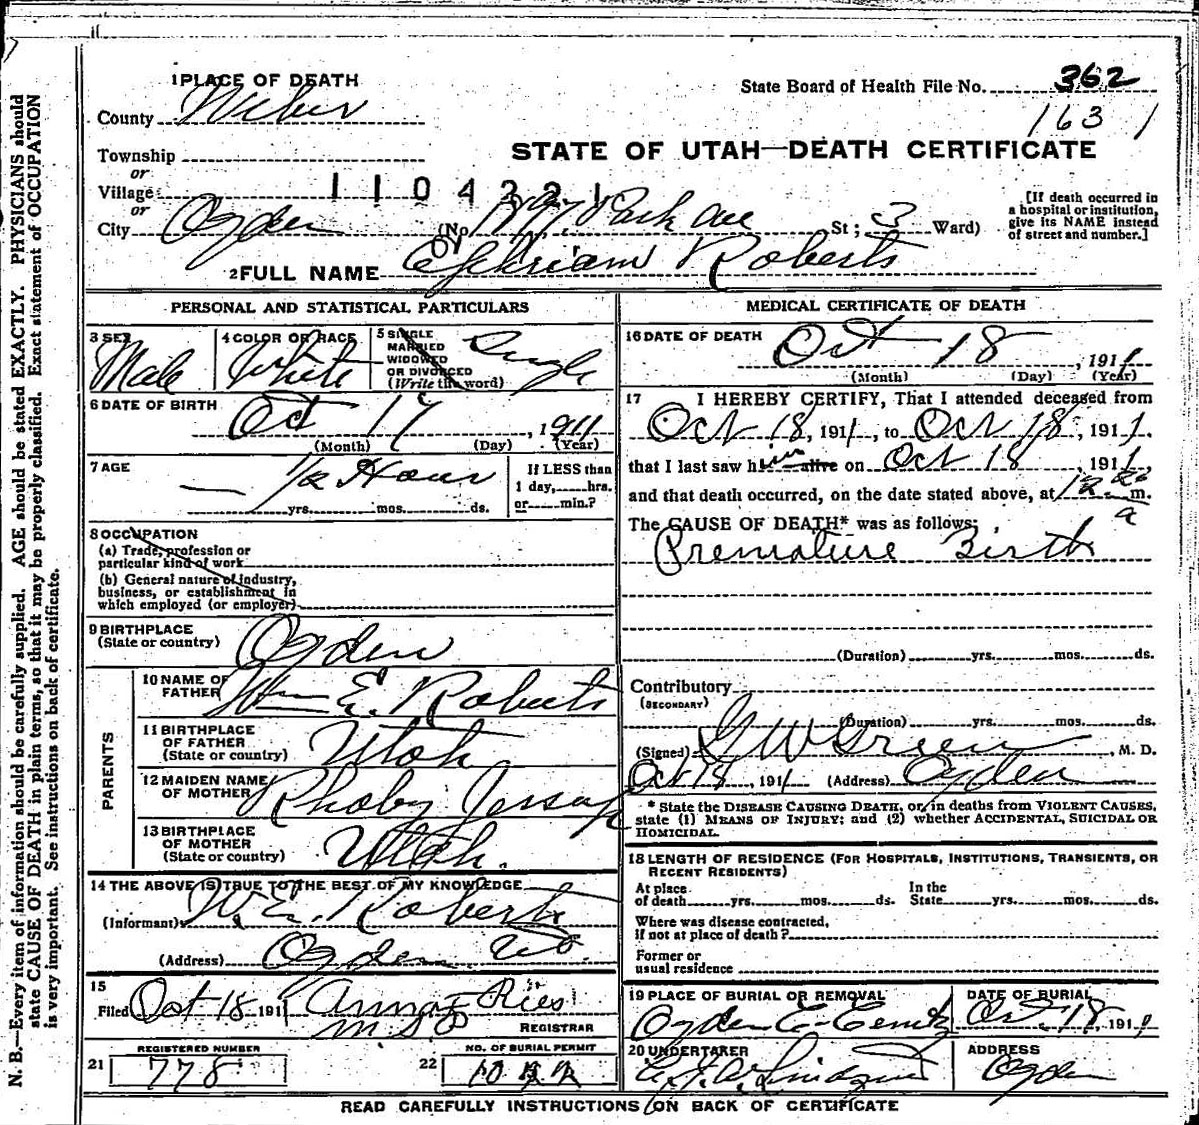 1 PLACE OF DEATH
County Weber
State Board of Health File No. 362
163 1
Township
or
Village
STATE OF UTAH—DEATH CERTIFICATE
1104321
or
City Ogden (No. Park Ave St; 3 Ward)
[If death occurred in a hospital or institution, give its NAME instead of street and number.]
2 FULL NAME Ephriam Roberts
PERSONAL AND STATISTICAL PARTICULARS
3 SEX Male
4 COLOR OR RACE White
5 SINGLE MARRIED WIDOWED OR DIVORCED (Write the word) Single
6 DATE OF BIRTH Oct 17, 1911
(Month) (Day) (Year)
7 AGE — 1/2 Hour
yrs. mos. ds.
If LESS than 1 day, hrs. or min.?
8 OCCUPATION
(a) Trade, profession or particular kind of work
(b) General nature of industry, business, or establishment in which employed (or employer)
9 BIRTHPLACE (State or country) Ogden
PARENTS
10 NAME OF FATHER Wm E. Roberts
11 BIRTHPLACE OF FATHER (State or country) Utah
12 MAIDEN NAME OF MOTHER Rhoby Jessop
13 BIRTHPLACE OF MOTHER (State or country) Utah.
14 THE ABOVE IS TRUE TO THE BEST OF MY KNOWLEDGE
(Informant) W. E. Roberts
(Address) Ogden
15
Filed Oct 18 1911 Anna Ries
REGISTRAR
REGISTERED NUMBER
21 778
NO. OF BURIAL PERMIT
22
MEDICAL CERTIFICATE OF DEATH
16 DATE OF DEATH Oct 18, 1911
(Month) (Day) (Year)
17 I HEREBY CERTIFY, That I attended deceased from
Oct 18, 1911, to Oct 18, 1911.
that I last saw him alive on Oct 18, 1911,
and that death occurred, on the date stated above, at m.
a
The CAUSE OF DEATH* was as follows:
Premature Birth
(Duration) yrs. mos. ds.
Contributory
(SECONDARY)
(Duration) yrs. mos. ds.
(Signed) G W Green, M. D.
Oct 18, 1911 (Address) Ogden
* State the DISEASE CAUSING DEATH, or, in deaths from VIOLENT CAUSES, state (1) MEANS OF INJURY; and (2) whether ACCIDENTAL, SUICIDAL OR HOMICIDAL.
18 LENGTH OF RESIDENCE (FOR HOSPITALS, INSTITUTIONS, TRANSIENTS, OR RECENT RESIDENTS)
At place of death yrs. mos. ds. In the State yrs. mos. ds.
Where was disease contracted, if not at place of death?
Former or usual residence
19 PLACE OF BURIAL OR REMOVAL Ogden
DATE OF BURIAL Oct. 18, 1911
20 UNDERTAKER
ADDRESS Ogden
READ CAREFULLY INSTRUCTIONS ON BACK OF CERTIFICATE
N. B.—Every item of information should be carefully supplied. AGE should be stated EXACTLY. PHYSICIANS should
state CAUSE OF DEATH in plain terms, so that it may be properly classified. Exact statement of OCCUPATION
is very important. See instructions on back of certificate.